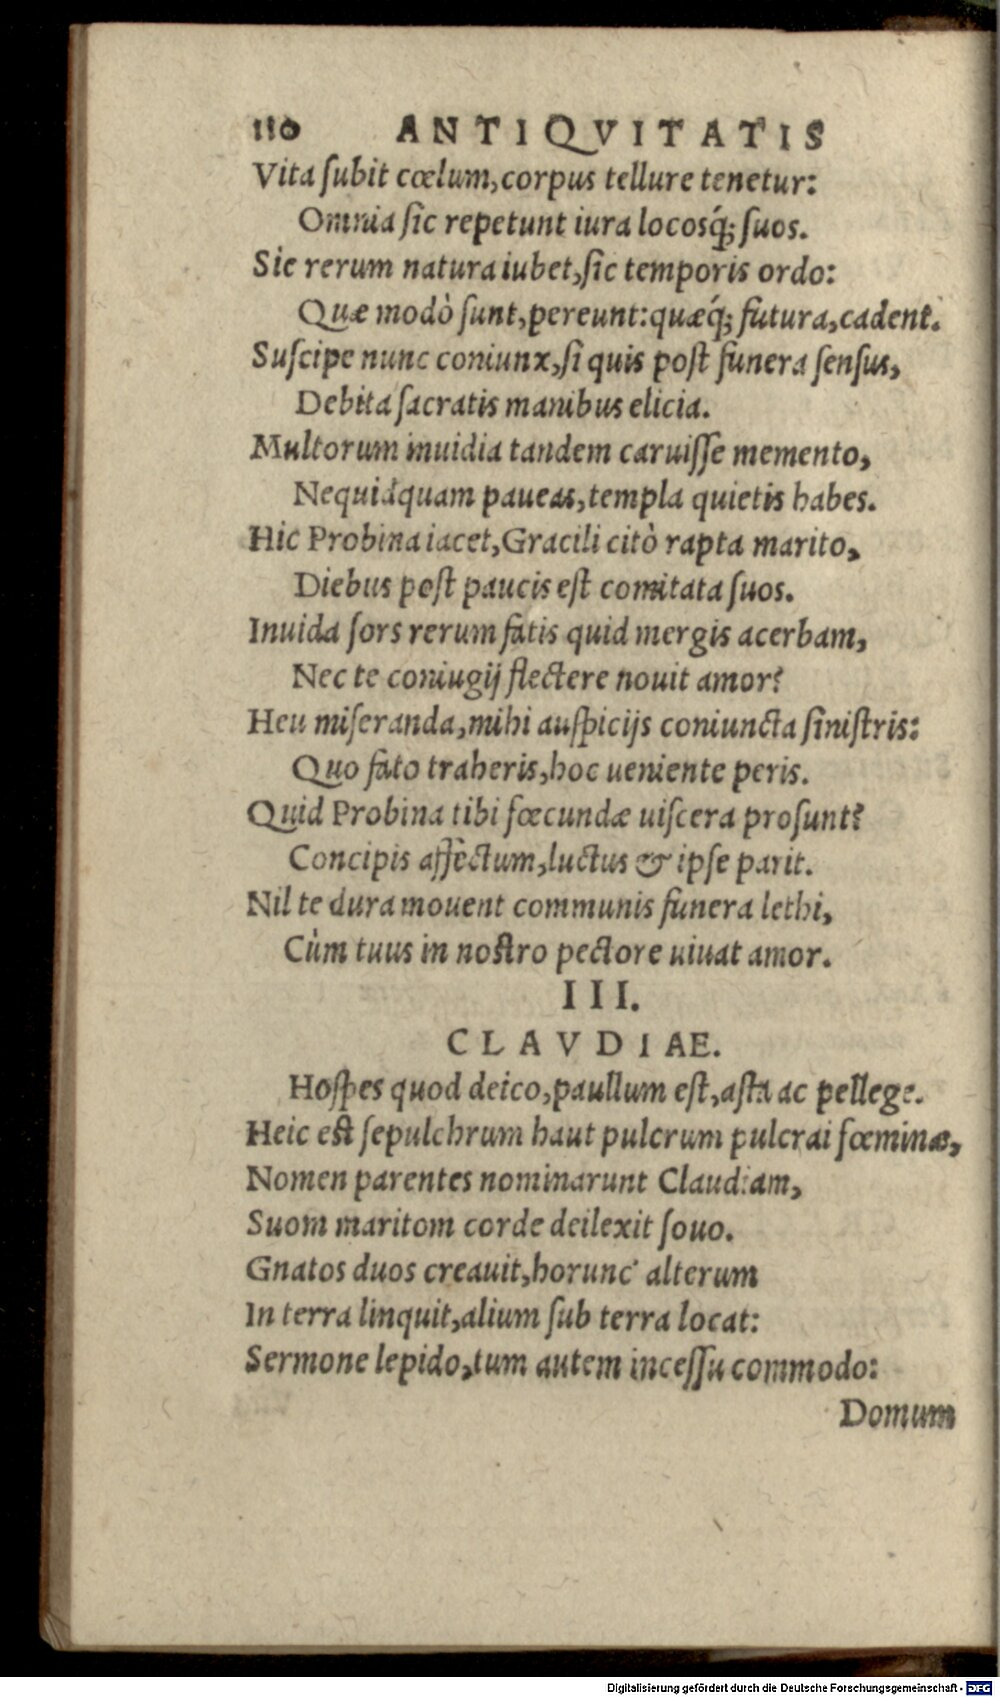 110 ANTIQVITATIS
Vita ſubit cœlum, corpus tellure tenetur:
Omnia ſic repetunt iura locosq́; ſuos.
Sic rerum natura iubet, ſic temporis ordo:
Quæ modò ſunt, pereunt: quæq́; futura, cadent.
Suſcipe nunc coniunx, ſi quis poſt funera ſenſus,
Debita ſacratis manibus elicia.
Multorum inuidia tandem caruiſſe memento,
Nequidquam paueas, templa quietis habes.
Hic Probina iacet, Gracili citò rapta marito,
Diebus poſt paucis eſt comitata ſuos.
Inuida ſors rerum fatis quid mergis acerbam,
Nec te coniugij flectere nouit amor?
Heu miſeranda, mihi auſpicijs coniuncta ſiniſtris:
Quo fato traheris, hoc ueniente peris.
Quid Probina tibi fœcundæ uiſcera proſunt?
Concipis affèctum, luctus & ipſe parit.
Nil te dura mouent communis funera lethi,
Cùm tuus in noſtro pectore uiuat amor.
III.
CLAVDIAE.
Hoſpes quod deico, paullum eſt, aſta ac pellege.
Heic eſt ſepulchrum haut pulcrum pulcrai fœminæ,
Nomen parentes nominarunt Claudiam,
Suom maritom corde deilexit ſouo.
Gnatos duos creauit, horunc' alterum
In terra linquit, alium ſub terra locat:
Sermone lepido, tum autem inceſſu commodo:
Domum
Digitalisierung gefördert durch die Deutsche Forschungsgemeinschaft - DFG